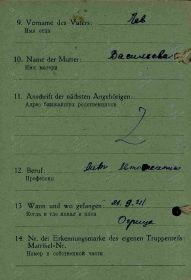 9. Vorname des Vaters: Лев
Имя отца
10. Name der Mutter: Васильева
Имя матери
11. Anschrift der nächsten Angehörigen:
Адрес ближайших родственников
12. Beruf:
Профессия
13 Wann und wo gefangen 21.9.41
Когда и где попал в плен
14. Nr. der Erkennungsmarke des eigenen Truppenteils
Matrikel-Nr.
Номер в собственной части